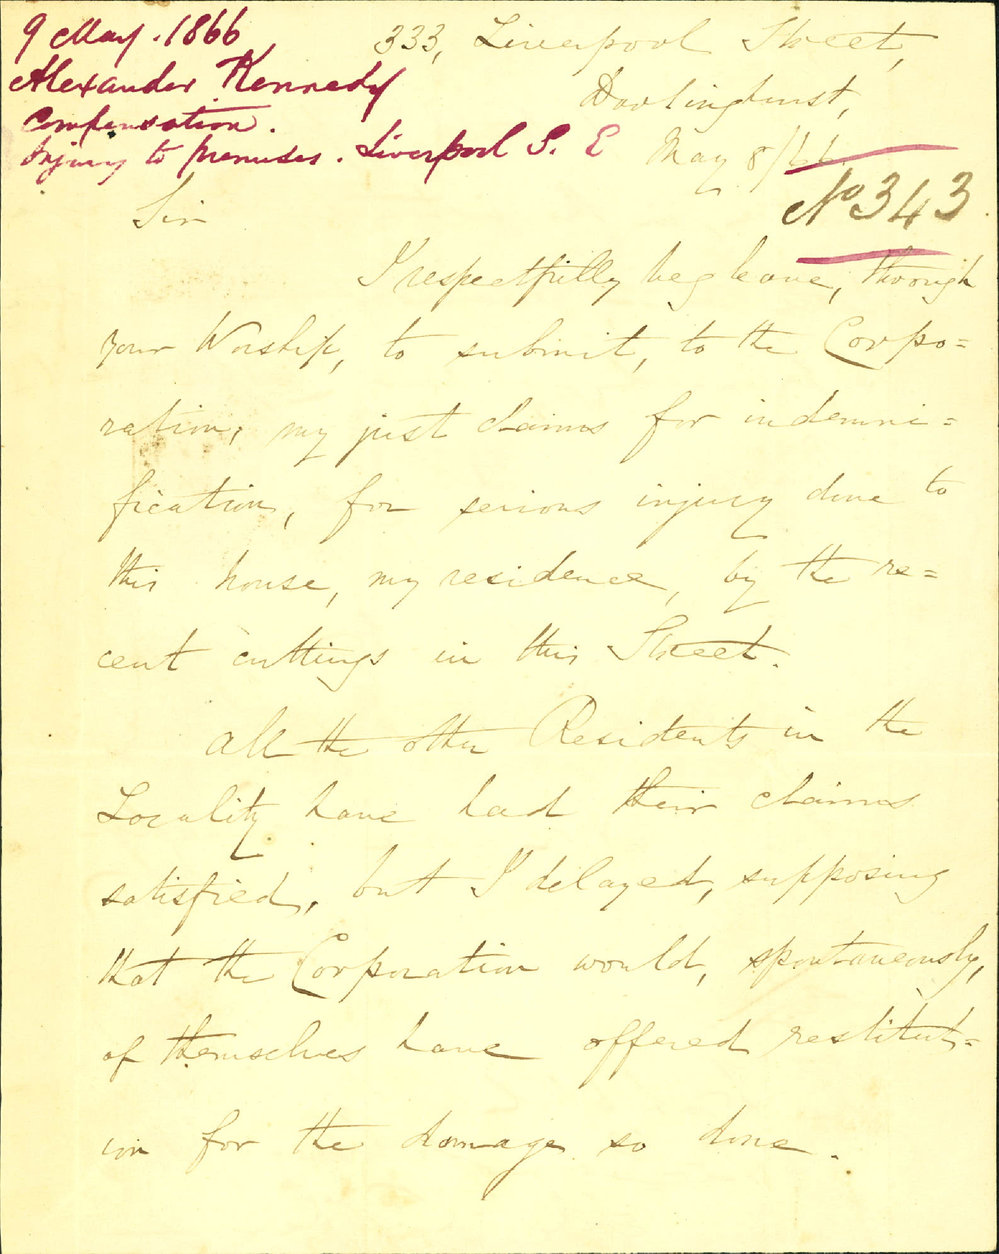 9 May. 1866
Alexander Kennedy
Compensation.
Injury to premises. Liverpool S. E
333, Liverpool Street,
Darlinghurst,
May 8/66.
No 343
Sir
I respectfully beg leave, through
your Worship, to submit, to the Corpo=
ration, my just claims for indemni=
fication, for serious injury done to
this house, my residence, by the re=
cent cuttings in this Street.
All the other Residents in the
Locality have had their claims
satisfied, but I delayed, supposing
that the Corporation would, spontaneously,
of themselves have offered restitut=
ion for the damage so done.